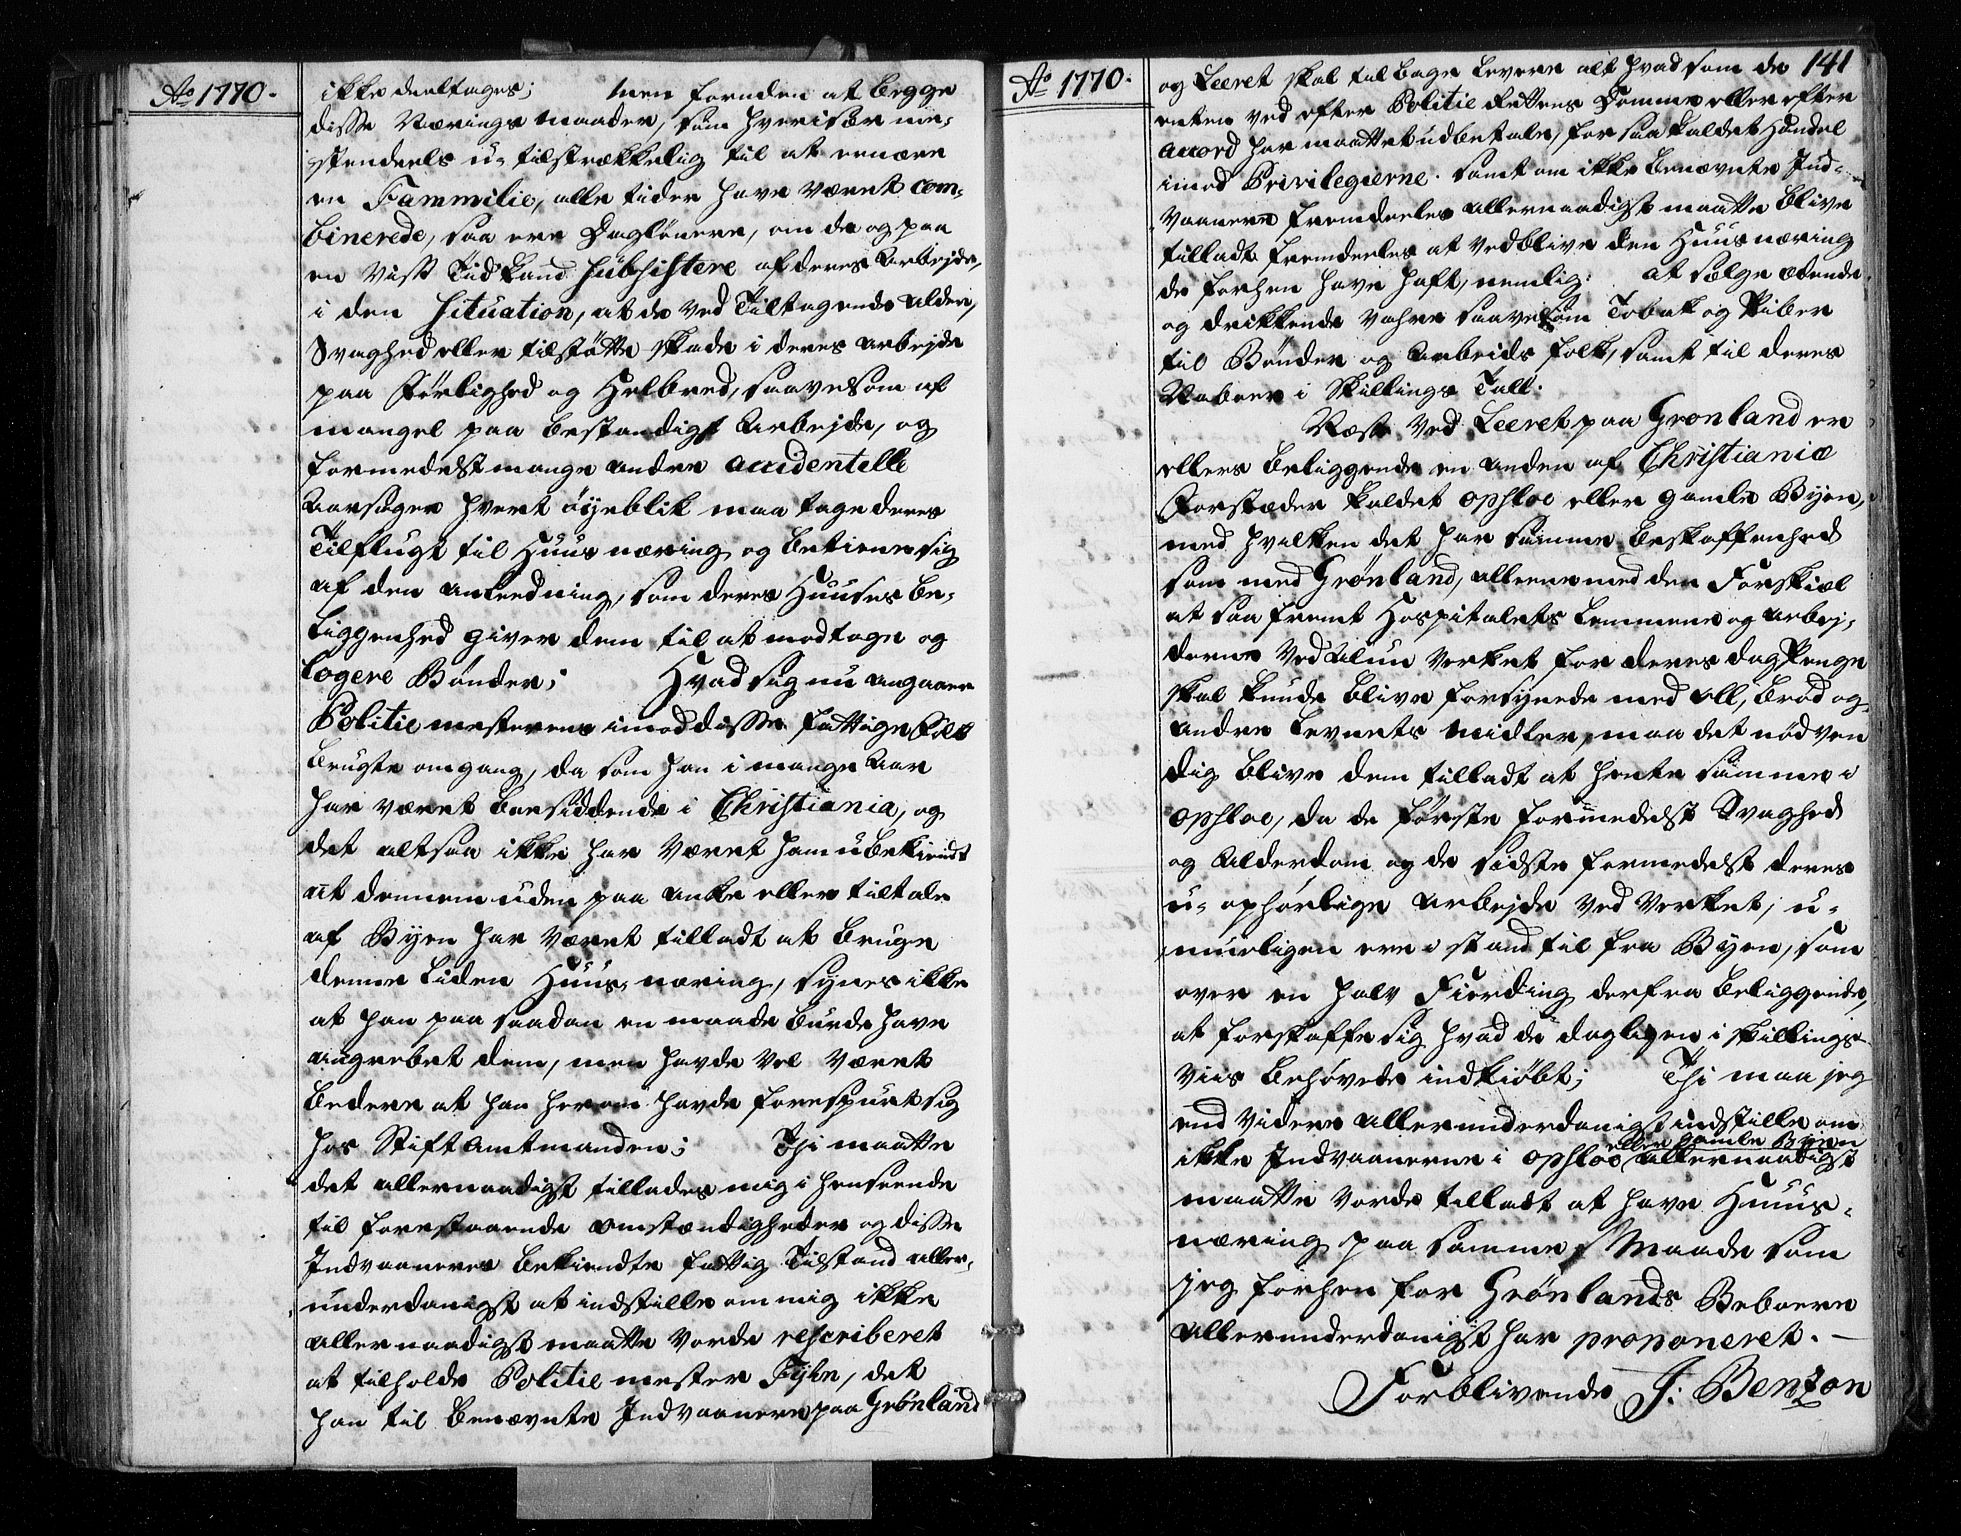 Ao 1770.
ikke deeltages; Men foruden at begge
disse Nærings maader, som hver især mee-
stendeels u-tilstrækkelig til at ernære
en Fammilie, alle tider have været com-
binerede, saa ere Daglønere, om de og paa
en vist Tid kand subsistere af deres Arbejde,
i den Situation, at de ved Tiltagende alder,
Svaghed eller tilstøtte skade i deres arbejde
paa Førlighed og Helbred, saavelsom af
mangel paa bestandigt Arbejde, og
formedelst mange andre accidentelle
Aarsager hvert øyeblik maa tage deres
Tilflugt til Huus næring og betiene sig
af den anleedning, som deres Huuses be-
liggenhed giver dem til at modtage og
logere Bønder; Hvad sig nu angaaer
Politie mesterens imod disse fattige Folk
brugte omgang, da som han i mange Aar
har været boesiddende i Christiania, og
det altsaa ikke har været ham ubekiendt
at dennem uden paa anke eller tiltale
af Byen har været tilladt at bruge
denne liden Huus-næring, synes ikke
at han paa saadan en maade burde have
angrebet dem, men havde vel været
bedere at han herom havde forespurt sig
hos Stiftamtmanden; Thi maatte
det allernaadigst tillades mig i henseende
til forestaaende omstændigheder og disse
Indvaaneres bekiendte fattig Tilstand aller-
underdanigst at indstille om mig ikke
allernaadigst maatte vorde rescriberet
at tilholde Politie mester Fyhn, det
han til benævnte Indvaanere paa Grønland
Ao 1770.
141
og Leeret skal tilbage levere alt hvad som de
enten ved efter Politie Rettens Domme eller efter
accord har maattet udbetale, for saa kaldet Handel
imod Privilegierne. samt om ikke benævnte Ind-
vaanere fremdeeles allernaadigst maatte blive
tilladt fremdeeles at vedblive den Huusnæring
de forhen have haft, nemlig: at sælge ædende
og drikkende Vahre saavelsom Tobak og Piber
til Bønder og Arbeids folk, samt til deres
Naboer i Skillings Tall.
Næst ved Leeret paa Grønland er
ellers beliggende en anden af Christianiæ
Forstæder kaldet Opsloe eller gamle Byen,
med hvilken det har samme beskaffenhed
som med Grønland, alleene med den Forskiæl
at saa fremt Hospitalets Lemmene og arbej-
derne ved Alun verket for deres dag Penge
skal kunde blive forsynede med öll, brød og
andre levnets midler, maa det nødven
dig blive dem tilladt at hente samme i
Opsloe, da de første formedelst Svaghed
og Alderdom og de sidste formedelst deres
u-ophørlige arbejde ved Verket, u-
muligen ere i stand til fra Byen, som
over en halv Fierding derfra beliggende,
at forskaffe sig hvad de dagligen i skillings
viis behøvede indkiøbt; Thi maa jeg
end videre allerunderdanigst indstille om
eller Gamle Byen
ikke Indvaanerne i Opsloe allernaadigst
maatte vorde tilladt at have Huus-
næring paa samme Maade som
jeg forhen for Grønlands Beboere
allerunderdanigst har proponeret.
Forblivende J: Benzon